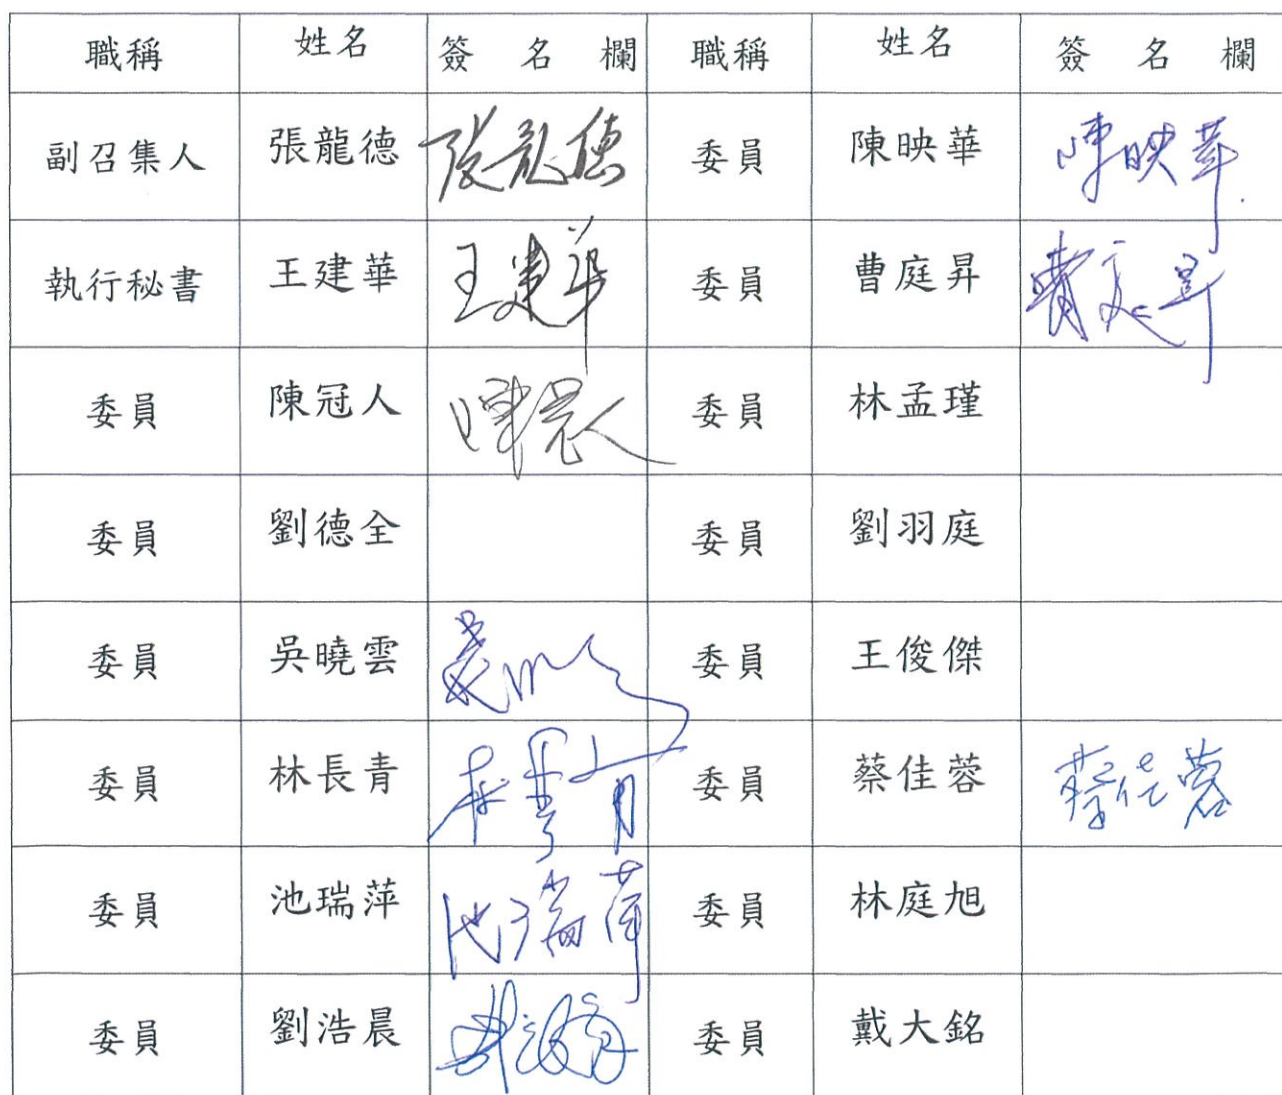 職稱 姓名 簽名欄 職稱 姓名 簽名欄
副召集人 張龍德 張龍德 委員 陳映華 陳映華
執行秘書 王建華 王建華 委員 曹庭昇 曹庭昇
委員 陳冠人 陳冠人 委員 林孟瑾
委員 劉德全 委員 劉羽庭
委員 吳曉雲 委員 王俊傑
委員 林長青 林長青 委員 蔡佳蓉 蔡佳蓉
委員 池瑞萍 池瑞萍 委員 林庭旭
委員 劉浩晨 委員 戴大銘